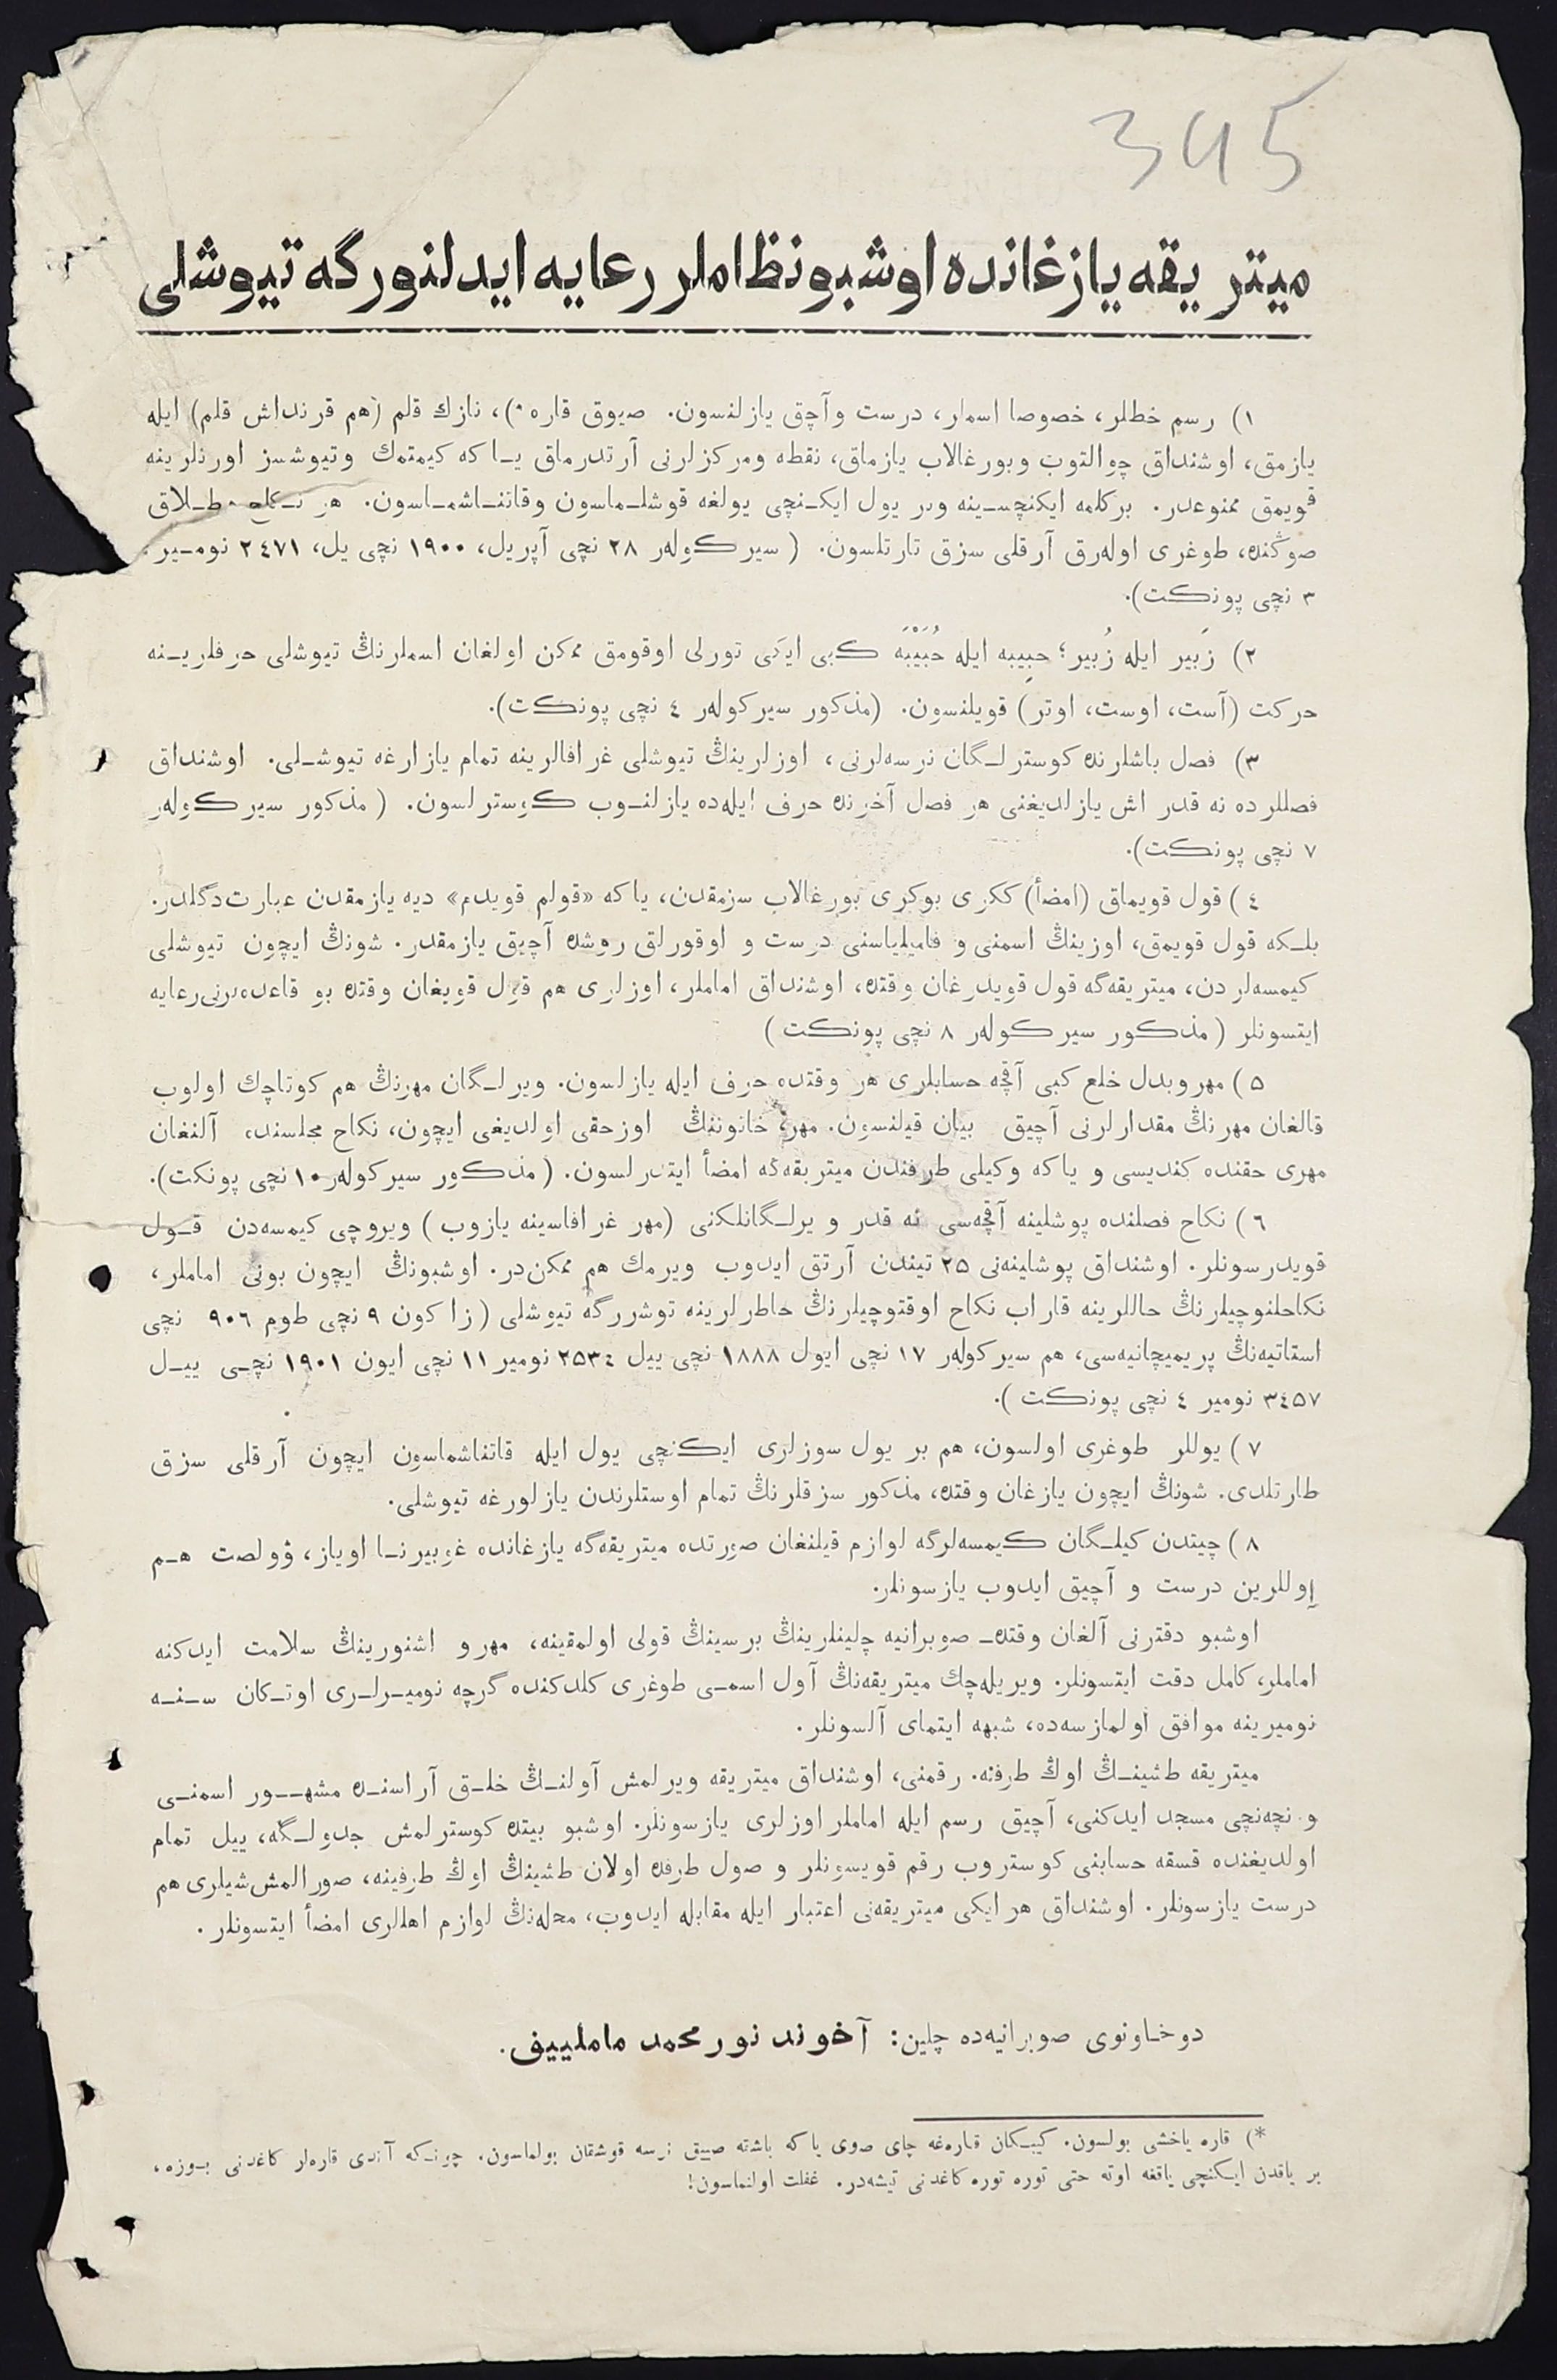 345
ميتريقه يازغانده اوشبو نظاملر رعايه ايدلنورگه تيوشلى
١) رسم خطلر، خصوصا اسملر، درست وآچق يازلنسون. صيوق قاره *)، نازك قلم (هم قرنداش قلم) ايله
يازمق، اوشنداق چوالتوب وبورغالاب يازماق، نقطه ومركزلرنى آرتدرماق يـا كه كيمتمك وتيوشسز اورنلرينه
قويمق ممنوعدر. بركلمه ايكنچسـينه وبر يول ايكـنچى يولغه قوشلـماسون وقاتنـاشمـاسون. هر نـكاح طـلاق
صوڭنده، طوغرى اولەرق آرقلى سزق تارتلسون. (سيركولەر ٢٨ نچى آپريل، ١٩٠٠ نچى يل، ٢٤٧١ نومـير.
٣ نچى پونكت).
٢) زَبير ايله زُبير؛ حبِيبه ايله حُبَيْبَه كبى ايكى تورلى اوقومق ممكن اولغان اسملرنڭ تيوشلى حرفلريـنه
حركت (آست، اوست، اوتر) قويلنسون. (مذكور سيركولەر ٤ نچى پونكت).
٣) فصل باشلرنده كوسترلـگان نرسەلرنى، اوزلرينڭ تيوشلى غرافالرينه تمام يازارغه تيوشـلى. اوشنداق
فصللرده نه قدر اش يازلديغنى هر فصل آخرنده حرف ايلەده يازلنـوب كوسترلسون. (مذكور سيركولەر
٧ نچى پونكت).
٤) قول قويماق (امضأ) ككرى بوكرى بورغالاب سزمقدن، ياكه «قولم قويدم» ديه يازمقدن عبارت دگلدر.
بلـكه قول قويمق، اوزينڭ اسمنى و فاميلياسنى درست و اوقورلق روشده آچيق يازمقدر. شونڭ ايچون تيوشلى
كيمسەلردن، ميتريقەگه قول قويدرغان وقتده، اوشنداق اماملر، اوزلرى هم قول قويغان وقتده بو قاعدەلرنى رعايه
ايتسونلر (مذكور سيركولەر ٨ نچى پونكت)
۵) مهر وبدل خلع كبى آقچه حسابلرى هر وقتده حرف ايله يازلسون. ويرلـگان مهرنڭ هم كوتاچك اولوب
قالغان مهرنڭ مقدارلرنى آچيق بيان قيلنسون. مهر، خاتوننڭ اوز حقى اولديغى ايچون، نكاح مجلسنده آلنغان
مهرى حقنده كنديسى و ياكه وكيلى طرفندن ميتريقەگه امضأ ايتدرلسون. (مذكور سيركولەر ١٠ نچى پونكت).
٦) نكاح فصلنده پوشلينه آقچەسى نه قدر ويرلـگانلكنى (مهر غرافاسينه يازوب) ويروچى كيمسەدن قـول
قويدرسونلر. اوشنداق پوشلينەنى ٢٥ تيندن آرتق ايدوب ويرمك هم ممكن در. اوشبونڭ ايچون بونى اماملر،
نكاحلنوچيلرنڭ حاللرينه قاراب نكاح اوقتوچيلرنڭ خاطرلرينه توشررگه تيوشلى (زاكون ٩ نچى طوم ٩٠٦ نچى
استاتيەنڭ پريميچانيەسى، هم سيركولەر ١٧ نچى ايول ١٨٨٨ نچى ييل ٢٥٣٤ نومير ١١ نچى ايون ١٩٠١ نچـى ييـل
٣٤٥٧ نومير ٤ نچى پونكت).
٧) يوللر طوغرى اولسون، هم بر يول سوزلرى ايكنچى يول ايله قاتناشماسون ايچون آرقلى سزق
طارتلدى. شونڭ ايچون يازغان وقتده، مذكور سزقلرنڭ تمام اوستلرندن يازلورغه تيوشلى.
٨) چيتدن كيلـگان كيمسەلرگه لوازم قيلنغان صورتده ميتريقەگه يازغانده غوبيرنـا اوياز، ۋولصت هـم
إوللرين درست و آچيق ايدوب يازسونلر.
اوشبو دفترنى آلغان وقتده صوبرانيه چلينلرينڭ برسينڭ قولى اولمقينه، مهر و اشنورينڭ سلامت ايدكنه
اماملر، كامل دقت ايتسونلر. ويريلەچك ميتريقەنڭ آول اسمـى طوغرى كلدكنده گرچه نوميـرلـرى اوتـكان سـنـه
نوميرينه موافق اولمازسەده، شبهه ايتماى آلسونلر.
ميتريقه طشينـڭ اوڭ طرفنه رقمنى، اوشنداق ميتريقه ويرلمش آولنـڭ خلـق آراسنـده مشهــور اسمنـى
و نچەنچى مسجد ايدكنى، آچيق رسم ايله اماملر اوزلرى يازسونلر. اوشبو بيتده كوسترلمش جدولـگه، ييل تمام
اولديغنده قسقه حسابنى كوستروب رقم قويسونلر و صول طرفده اولان طشينڭ اوڭ طرفينه، صورالمش شيلرى هم
درست يازسونلر. اوشنداق هر ايكى ميتريقەنى اعتبار ايله مقابله ايدوب، محلەنڭ لوازم اهللرى امضأ ايتسونلر.
دوخاونوى صوبرانيەده چلين: آخوند نورمحمد ماملييف.
*) قاره ياخشى بولسون. كيبـكان قارەغه چاى صوى ياكه باشته صيق نرسه قوشقان بولماسون. چونـكه آندى قارەلر كاغدنى بـوزه،
بر ياقدن ايـكنچى ياقغه اوته حتى توره توره كاغدنى تيشەدر. غفلت اولنماسون!